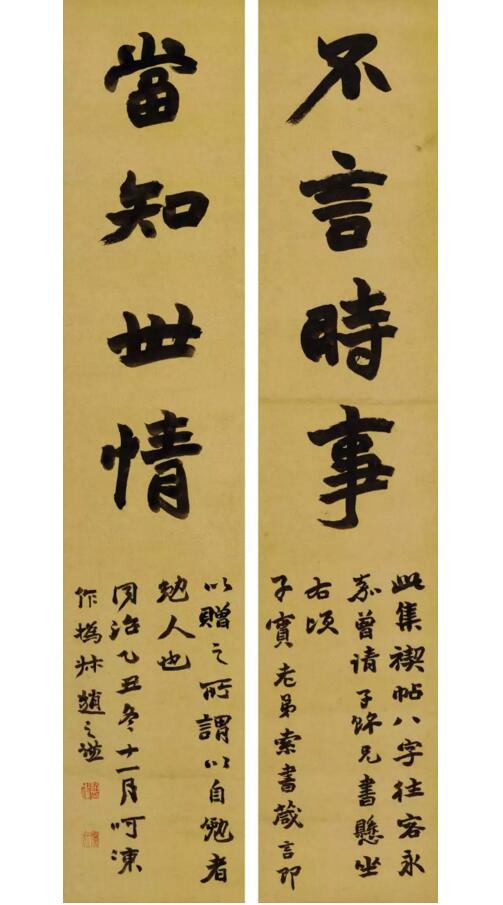 不言時事
此集禊帖八字往客永
嘉曾請子餘兄書懸坐
右頃
子賓老弟索書箴言即
當知世情
以贈之所謂以自勉者
勉人也
同治乙丑冬十一月呵凍
作撝叔趙之謙